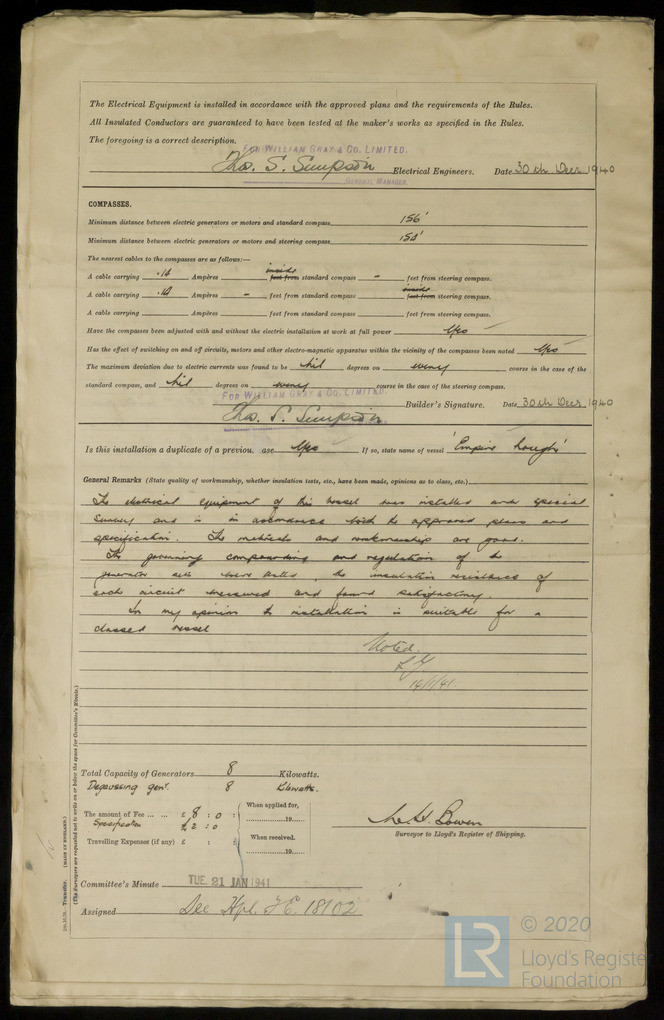 The Electrical Equipment is installed in accordance with the approved plans and the requirements of the Rules.
All Insulated Conductors are guaranteed to have been tested at the maker's works as specified in the Rules.
The foregoing is a correct description.
FOR WILLIAM GRAY & CO. LIMITED.
Thos. S. Simpson Electrical Engineers. Date 30th Decr 1940
GENERAL MANAGER.
COMPASSES.
Minimum distance between electric generators or motors and standard compass 156'
Minimum distance between electric generators or motors and steering compass 154'
The nearest cables to the compasses are as follows:—
A cable carrying .14 Ampères inside feet from standard compass - feet from steering compass.
A cable carrying .14 Ampères - feet from standard compass inside feet from steering compass.
A cable carrying Ampères feet from standard compass feet from steering compass.
Have the compasses been adjusted with and without the electric installation at work at full power Yes
Has the effect of switching on and off circuits, motors and other electro-magnetic apparatus within the vicinity of the compasses been noted Yes
The maximum deviation due to electric currents was found to be Nil degrees on every course in the case of the
standard compass, and Nil degrees on every course in the case of the steering compass.
FOR WILLIAM GRAY & CO. LIMITED.
Thos. S. Simpson Builder's Signature. Date 30th Decr 1940
Is this installation a duplicate of a previous case Yes If so, state name of vessel 'Empire Lough'
General Remarks (State quality of workmanship, whether insulation tests, etc., have been made, opinions as to class, etc.)
The electrical equipment of this vessel was installed under special
survey and is in accordance with the approved plans and
specification. The materials and workmanship are good.
The governing compounding and regulation of the
generator sets were tested, the insulation resistance of
each circuit measured and found satisfactory.
In my opinion the installation is suitable for a
classed vessel
Noted.
16/1/41.
Total Capacity of Generators 8 Kilowatts.
Degaussing gen'. 8 Kilowatts.
The amount of Fee ... ... £ 8 : 0 :
Specification £2 : 0
Travelling Expenses (if any) £ : :
When applied for,
19
When received.
19
M. H. Bowen
Surveyor to Lloyd's Register of Shipping.
Committee's Minute TUE. 21 JAN 1941
Assigned See Hpl. F.E. 18102
(The Surveyors are requested not to write on or below the space for Committee's Minute.)
Transfer. (MADE IN ENGLAND.)
LR © 2020
Lloyd's Register
Foundation